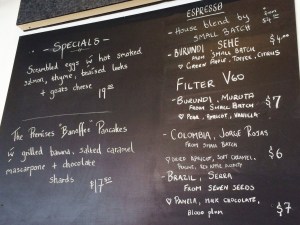 SPECIALS
Scrambled eggs w hot smoked
salmon, thyme, braised leeks
+ goats cheese
19.50
The Premises "Banoffee" Pancakes
w grilled banana, salted caramel
mascarpone + chocolate
shards $17.50
ESPRESSO
- HOUSE BLEND BY
SMALL BATCH
FROM
$4.00
- BURUNDI SEHE
FROM SMALL BATCH
GREEN APPLE, TOFFEE, CITRUS
$4.00
FILTER V60
- BURUNDI, MURUTA
FROM SMALL BATCH
PEAR, APRICOT, VANILLA
$7
- COLOMBIA, JORGE ROJAS
FROM SMALL BATCH
DRIED APRICOT, SOFT CARAMEL,
RED APPLE
$6
- BRAZIL, SERRA
FROM SEVEN SEEDS
PANELA, MILK CHOCOLATE,
BLOOD PLUM
$7